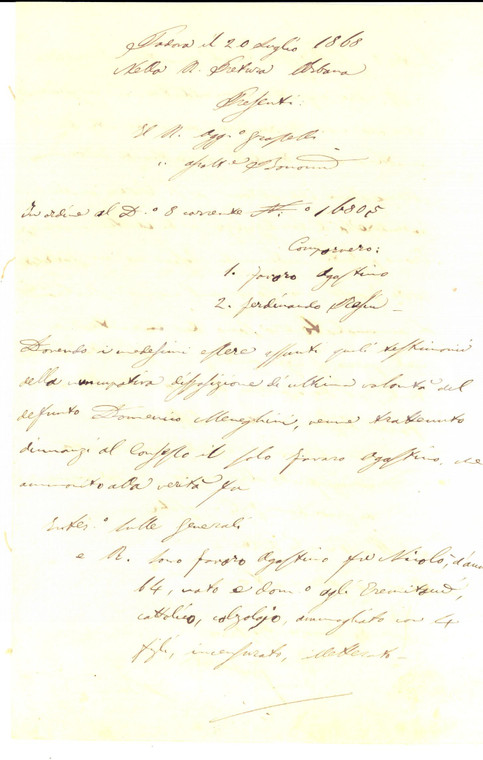 Padova il 20 Luglio 1868
Nella R. Pretura Urbana
Presenti:
Il R. Agg.o
In ordine al D.o 8 corrente N.o 16805
Comparvero:
1. Favaro Agostino
2. Ferdinando
Dovendo i medesimi essere assunti quali testimonii
della nuncupativa disposizione di ultima volontà del
defunto Domenico Meneghini, venne trattenuto
dinnanzi al Consesso il solo Favaro Agostino, che
ammonito alla verità fu
Inter.o sulle Generali
e R. Sono Favaro Agostino fu Nicolò, d'anni
64, nato e dom.o agli Eremitani,
cattolico, calzolajo, ammogliato con 4
figli, incensurato, illetterato